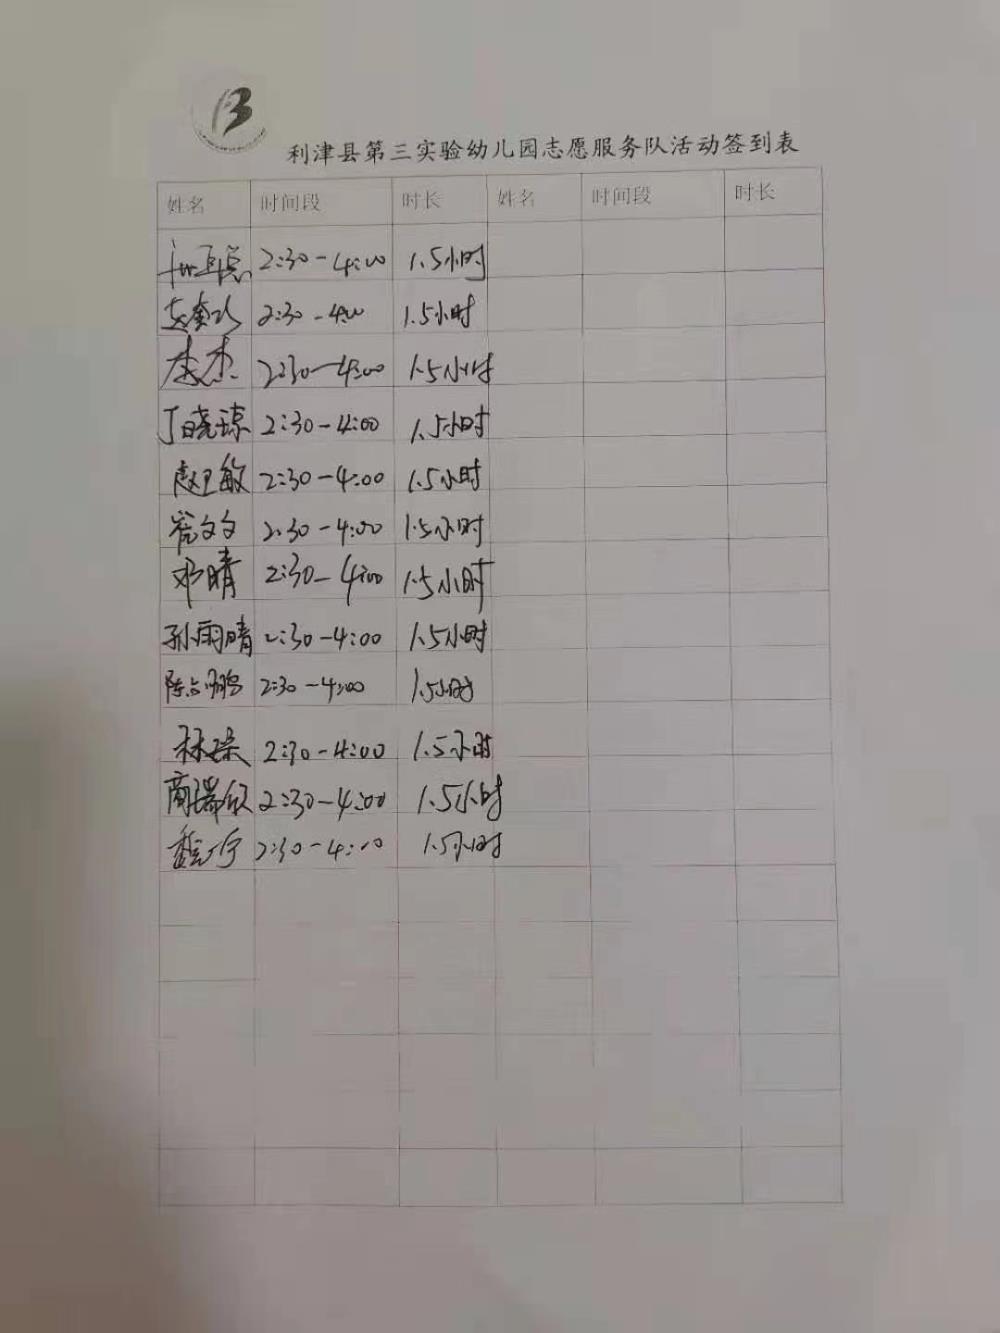 利津县第三实验幼儿园志愿服务队活动签到表
姓名 时间段 时长 姓名 时间段 时长
2:30-4:00 1.5小时
2:30-4:00 1.5小时
李杰 2:30-4:00 1.5小时
丁晓琼 2:30-4:00 1.5小时
赵卫敏 2:30-4:00 1.5小时
崔文文 2:30-4:00 1.5小时
邓晴 2:30-4:00 1.5小时
孙雨晴 2:30-4:00 1.5小时
2:30-4:00 1.5小时
林琛 2:30-4:00 1.5小时
商瑞欣 2:30-4:00 1.5小时
2:30-4:00 1.5小时